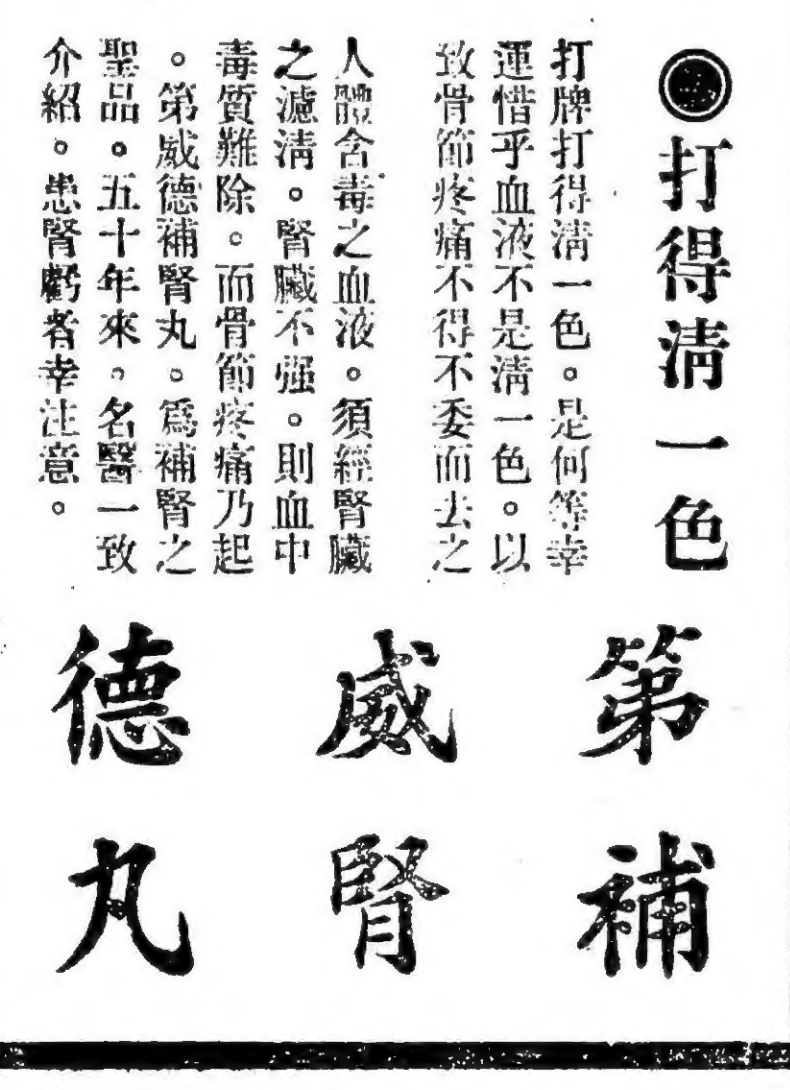 打得清一色
打牌打得清一色。是何等幸
運惜乎血液不是清一色。以
致骨節疼痛不得不委而去之
人體含毒之血液。須經腎臟
之濾清。腎臟不强。則血中
毒質難除。而骨節疼痛乃起
。第威德補腎丸。爲補腎之
聖品。五十年來。名醫一致
介紹。患腎虧者幸注意。
第威德
補腎丸